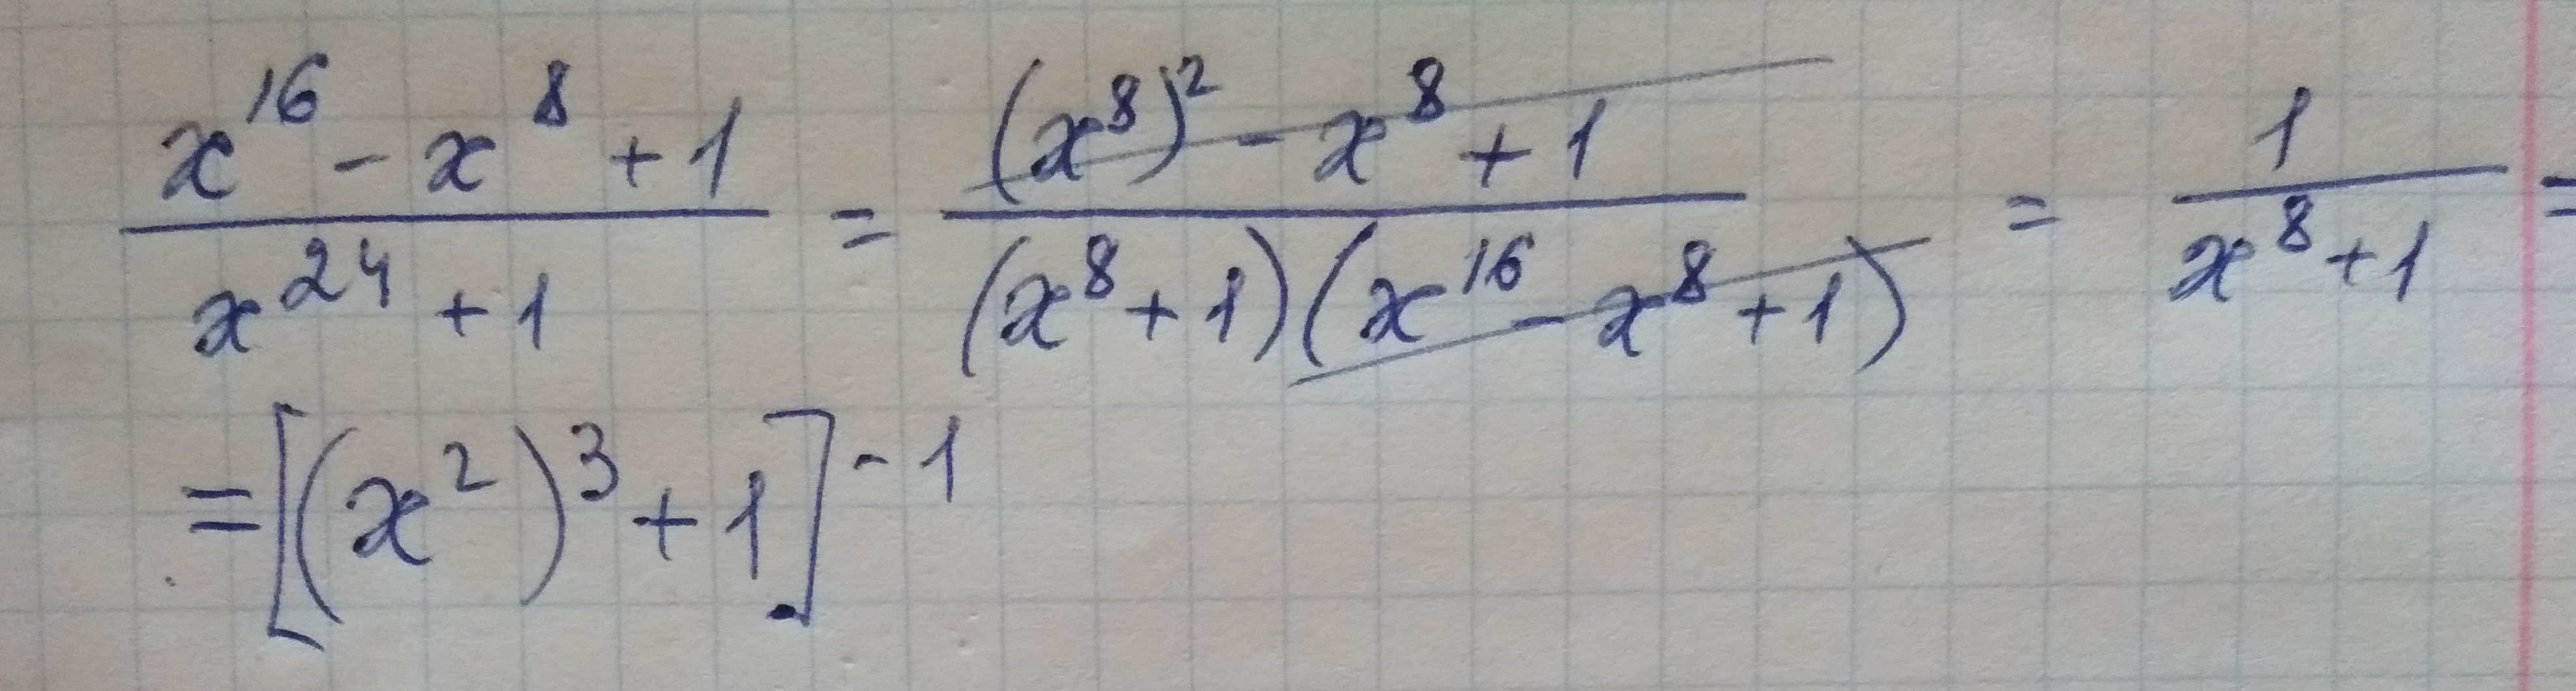 \frac{x^{16} - x^{8} + 1}{x^{24} + 1} = \frac{(x^{8})^{2} - x^{8} + 1}{(x^{8} + 1)(x^{16} - x^{8} + 1)} = \frac{1}{x^{8} + 1} =
= [(x^{2})^{3} + 1]^{-1}